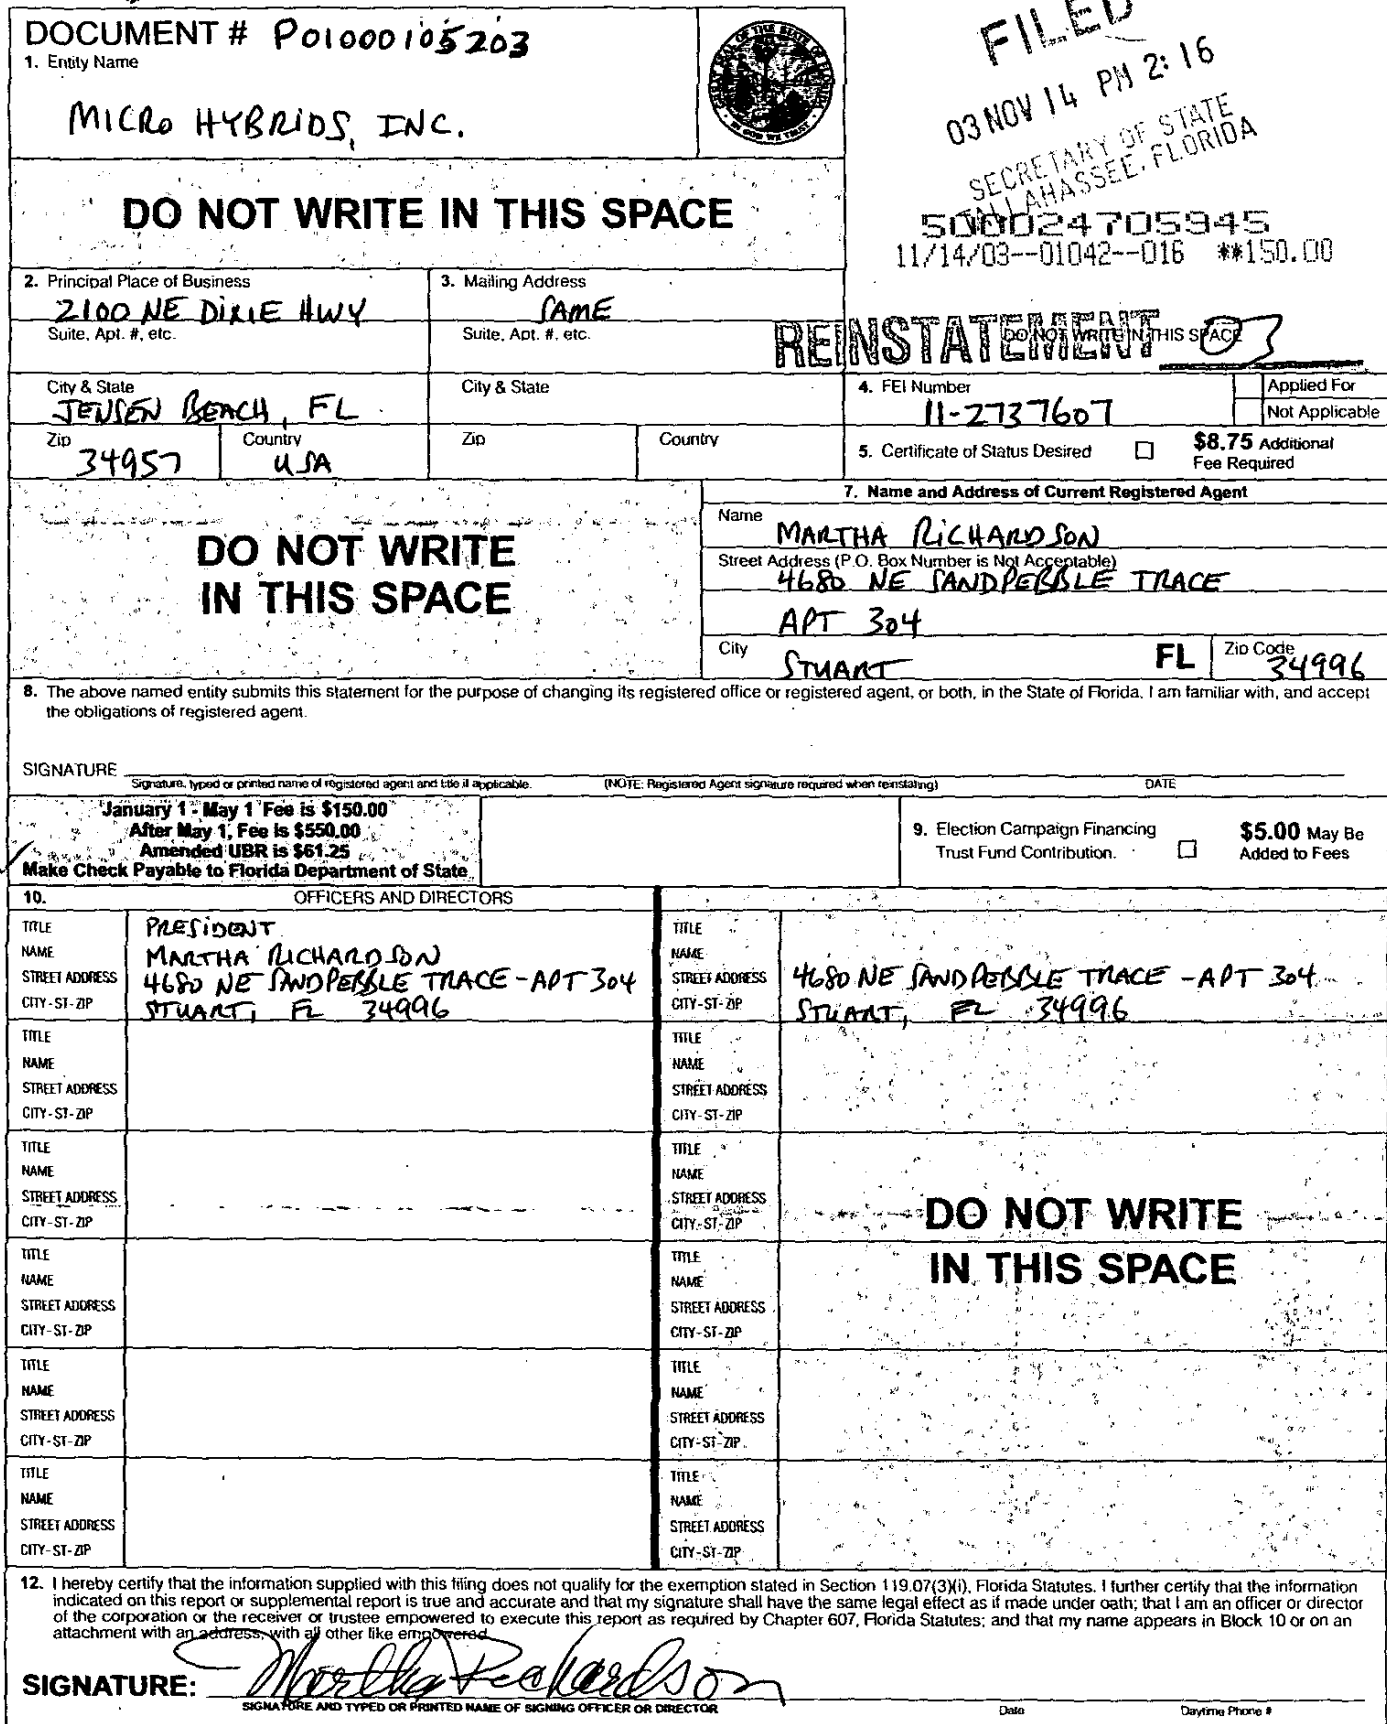 DOCUMENT # P01000105203
1. Entity Name
MICRO HYBRIDS, INC.
FILED
03 NOV 14 PM 2:16
SECRETARY OF STATE
TALLAHASSEE, FLORIDA
DO NOT WRITE IN THIS SPACE
500024705945
11/14/03--01042--016 **150.00
2. Principal Place of Business
2100 NE DIXIE HWY
3. Mailing Address
SAME
Suite, Apt. #, etc.
Suite, Apt. #, etc.
REINSTATEMENT 03
DO NOT WRITE IN THIS SPACE
City & State
JENSEN BEACH, FL
City & State
4. FEI Number
11-2737607
Applied For
Not Applicable
Zip
34957
Country
USA
Zip
Country
5. Certificate of Status Desired
$8.75 Additional
Fee Required
DO NOT WRITE
IN THIS SPACE
7. Name and Address of Current Registered Agent
Name
MARTHA RICHARDSON
Street Address (P.O. Box Number is Not Acceptable)
4680 NE SANDPEBBLE TRACE
APT 304
City
STUART
FL
Zip Code
34996
8. The above named entity submits this statement for the purpose of changing its registered office or registered agent, or both, in the State of Florida. I am familiar with, and accept
the obligations of registered agent.
SIGNATURE
Signature, typed or printed name of registered agent and title if applicable. (NOTE: Registered Agent signature required when reinstating) DATE
January 1 - May 1 Fee is $150.00
After May 1, Fee is $550.00
Amended UBR is $61.25
Make Check Payable to Florida Department of State
9. Election Campaign Financing
Trust Fund Contribution.
$5.00 May Be
Added to Fees
10. OFFICERS AND DIRECTORS
TITLE PRESIDENT
NAME MARTHA RICHARDSON
STREET ADDRESS 4680 NE SANDPEBBLE TRACE - APT 304
CITY-ST-ZIP STUART, FL 34996
TITLE
NAME
STREET ADDRESS 4680 NE SANDPEBBLE TRACE - APT 304
CITY-ST-ZIP STUART, FL 34996
TITLE
NAME
STREET ADDRESS
CITY-ST-ZIP
TITLE
NAME
STREET ADDRESS
CITY-ST-ZIP
TITLE
NAME
STREET ADDRESS
CITY-ST-ZIP
TITLE
NAME
STREET ADDRESS
CITY-ST-ZIP
DO NOT WRITE
IN THIS SPACE
TITLE
NAME
STREET ADDRESS
CITY-ST-ZIP
TITLE
NAME
STREET ADDRESS
CITY-ST-ZIP
TITLE
NAME
STREET ADDRESS
CITY-ST-ZIP
TITLE
NAME
STREET ADDRESS
CITY-ST-ZIP
TITLE
NAME
STREET ADDRESS
CITY-ST-ZIP
TITLE
NAME
STREET ADDRESS
CITY-ST-ZIP
12. I hereby certify that the information supplied with this filing does not qualify for the exemption stated in Section 119.07(3)(i), Florida Statutes. I further certify that the information
indicated on this report or supplemental report is true and accurate and that my signature shall have the same legal effect as if made under oath; that I am an officer or director
of the corporation or the receiver or trustee empowered to execute this report as required by Chapter 607, Florida Statutes; and that my name appears in Block 10 or on an
attachment with an address, with all other like empowered.
SIGNATURE: Martha Richardson
SIGNATURE AND TYPED OR PRINTED NAME OF SIGNING OFFICER OR DIRECTOR Date Daytime Phone #